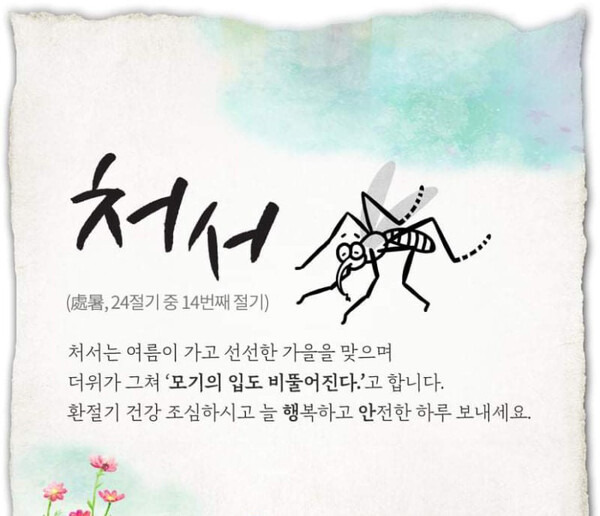 처서
(處暑, 24절기 중 14번째 절기)
처서는 여름이 가고 선선한 가을을 맞으며
더위가 그쳐 ‘모기의 입도 비뚤어진다.’고 합니다.
환절기 건강 조심하시고 늘 행복하고 안전한 하루 보내세요.